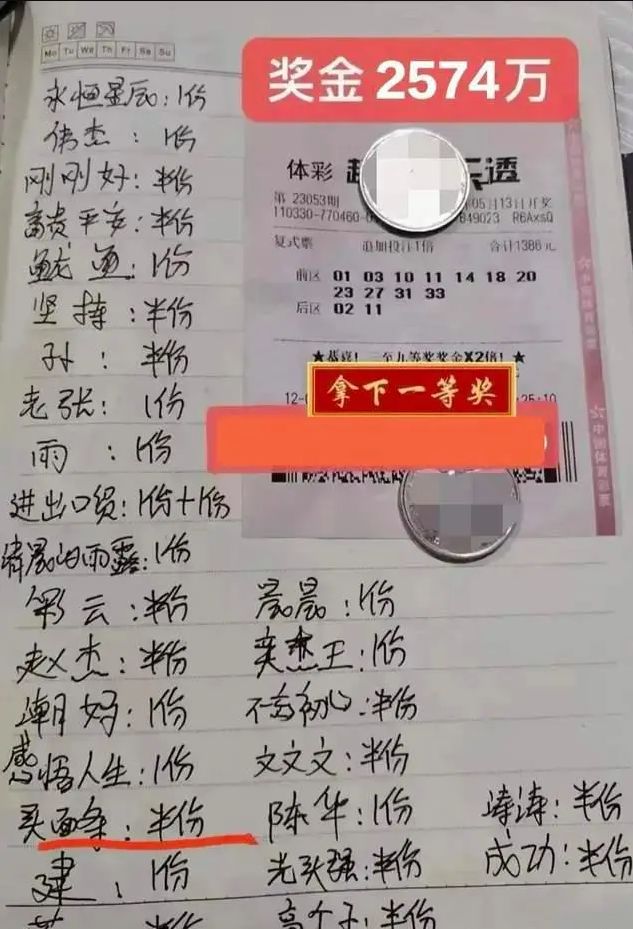 Mo Tu We Th Fr Sa Su
奖金2574万
永恒星辰:1份
伟杰:1份
刚刚好:半份
富贵平安:半份
鱿鱼:1份
坚持:半份
孙:半份
老张:1份
雨:1份
进出口贸:1份+1份
清晨的雨露:1份
彩云:半份
晨晨:1份
赵杰:半份
奕杰王:1份
潮好:1份
不忘初心:半份
感悟人生:1份
文文文:半份
买面条:半份
陈华:1份
涛涛:半份
建:1份
光头强:半份
成功:半份
高个子:半份
体彩 超
透
第 23053期
05月13日开奖
110330-770460-0
849023 R6AxsQ
复式票 追加投注1倍 合计1386元
前区 01 03 10 11 14 18 20
23 27 31 33
后区 02 11
★恭喜! 至九等奖奖金X2倍!★
拿下一等奖
中国体育彩票